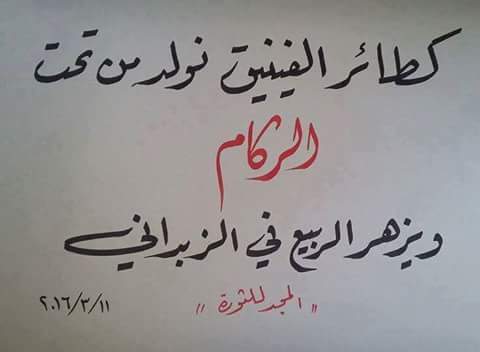 كطائر الفينيق نولد من تحت
الركام
ويزهر الربيع في الزبداني
"المجد للثورة"
٢٠١٦/٣/١١